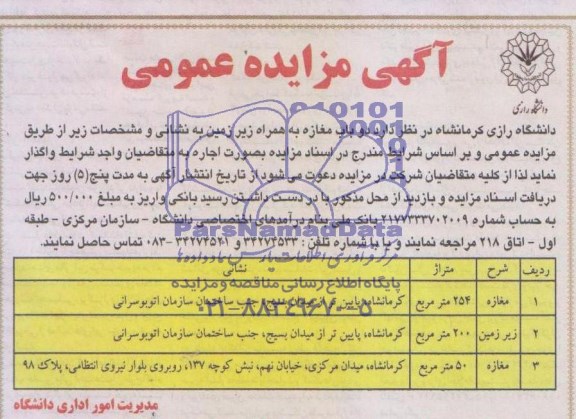 آگهی مزایده عمومی
دانشگاه رازی
دانشگاه رازی کرمانشاه در نظر دارد دو باب مغازه به همراه زیر زمین به نشانی و مشخصات زیر از طریق
مزایده عمومی و بر اساس شرایط مندرج در اسناد مزایده بصورت اجاره به متقاضیان واجد شرایط واگذار
نماید لذا از کلیه متقاضیان شرکت در مزایده دعوت می شود از تاریخ انتشار آگهی به مدت پنج(۵) روز جهت
دریافت اسناد مزایده و بازدید از محل مذکور با در دست داشتن رسید بانکی واریز به مبلغ ۵۰۰/۰۰۰ ریال
به حساب شماره ۲۱۷۷۳۳۳۷۰۲۰۰۹ بانک ملی بنام درآمدهای اختصاصی دانشگاه - سازمان مرکزی - طبقه
اول - اتاق ۲۱۸ مراجعه نمایند و یا با شماره تلفن: ۳۴۲۷۴۵۳۳ و ۳۴۲۷۴۵۴۱-۰۸۳ تماس حاصل نمایند.
ParsNamadData
پایگاه اطلاع رسانی مناقصه و مزایده
۰۲۱-۸۸۳۴۹۶۷۰-۵
ردیف شرح متراژ نشانی
۱ مغازه ۲۵۴ متر مربع کرمانشاه، پایین تر از میدان بسیج، جنب ساختمان سازمان اتوبوسرانی
۲ زیر زمین ۲۰۰ متر مربع کرمانشاه، پایین تر از میدان بسیج، جنب ساختمان سازمان اتوبوسرانی
۳ مغازه ۵۰ متر مربع کرمانشاه، میدان مرکزی، خیابان نهم، نبش کوچه ۱۳۷، روبروی بلوار نیروی انتظامی، پلاک ۹۸
مدیریت امور اداری دانشگاه